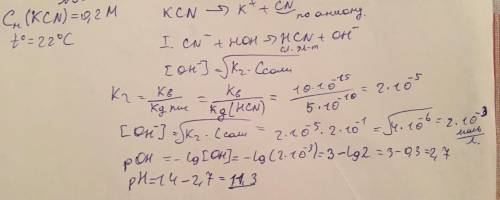 Cм(KCN)=0,2 M
t°=22°C
KCN → K⁺ + CN⁻ по аниону.
I. CN⁻ + HOH → HCN + OH⁻
сл. эл-т
[OH⁻] = √Kг · Cсоли
Kг = Kв / Kд кис = Kв / Kд(HCN) = 10·10⁻¹⁵ / 5·10⁻¹⁰ = 2·10⁻⁵
[OH⁻] = √Kг · Cсоли = 2·10⁻⁵ · 2·10⁻¹ = √4·10⁻⁶ = 2·10⁻³ моль/л.
pOH = -lg[OH] = -lg(2·10⁻³) = 3-lg2 = 3-0,3 = 2,7
pH = 14-2,7 = 11,3